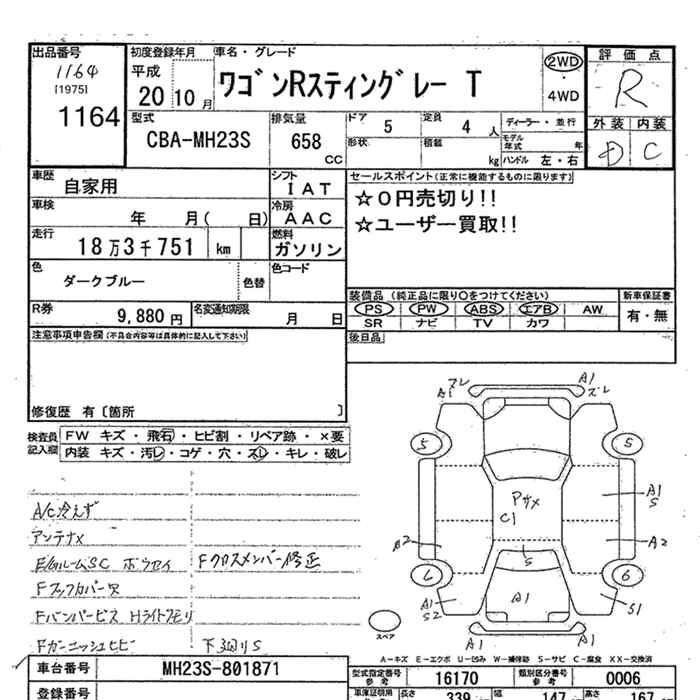 出品番号
1164
[1975]
1164
初度登録年月
平成
20 10月
車名・グレード
ワゴンRスティングレー T
2WD
・
4WD
評価点
R
外装 内装
D C
型式
CBA-MH23S
排気量
658
CC
ドア
5
定員
4 人
形状
積載
kg
ディーラー・並行
モデル年式 年
ハンドル 左・右
車歴
自家用
シフト
IAT
車検
年 月( 日)
冷房
AAC
走行
18万3千751 km
燃料
ガソリン
色
ダークブルー
色替
色コード
R券
9,880 円
名変通知期限
月 日
セールスポイント(正常に機能するものに限ります)
☆0円売切り!!
☆ユーザー買取!!
装備品 (純正品に限り〇をつけてください)
PS PW ABS エアB AW
SR ナビ TV カワ
新車保証書
有・無
後日品
注意事項申告欄(不具合内容等は具体的に記入して下さい)
修復歴 有〔箇所 〕
検査員
記入欄
FW キズ・飛石・ヒビ割・リペア跡・×要
内装 キズ・汚レ・コゲ・穴・スレ・キレ・破レ
A/C冷えず
アンテナ×
E/GルームSC ホウセイ
Fクロスメンバー修正
Fフックカバー欠
Fバンパービス Hライトクモリ
Fガーニッシュヒビ
下廻りS
A1
ズレ
A1
ズレ
5
5
Pサメ
C1
A1
S
A2
A2
S
6
6
A1
S2
A1
S1
A1
A1
スペア
A-キズ E-エクボ U-凹み W-補修跡 S-サビ C-腐食 XX-交換済
車台番号
MH23S-801871
登録番号
型式指定番号
参考
16170
類別区分番号
参考
0006
車庫証明用
長さ
339
幅
147
高さ
167